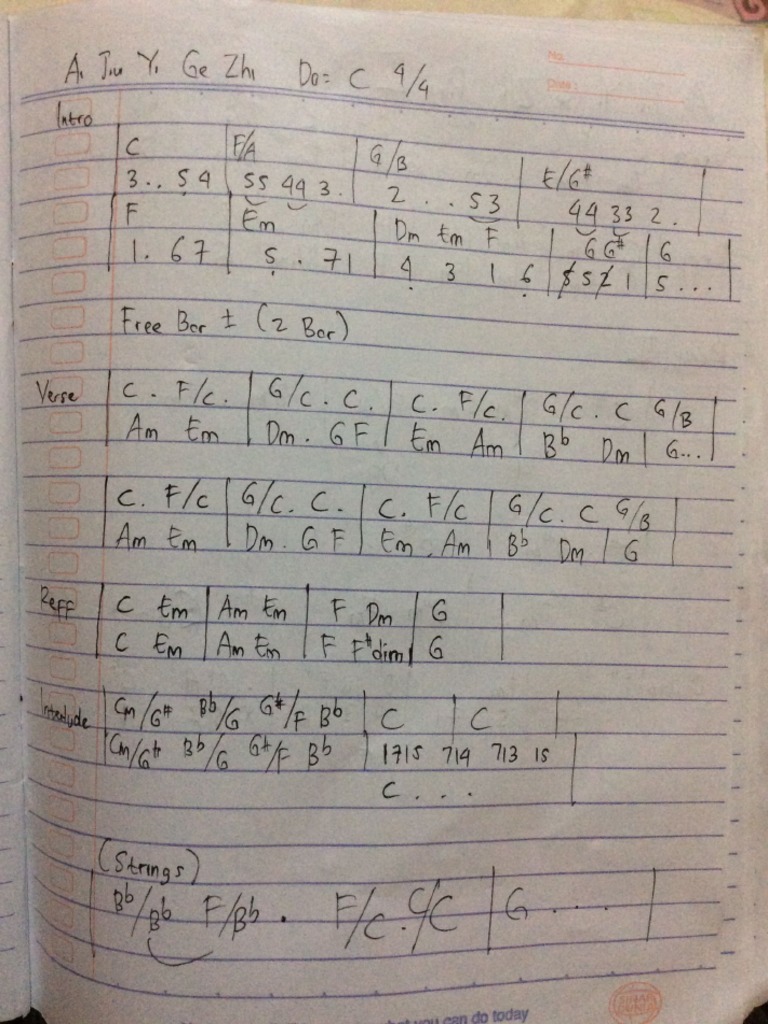 Ai Jiu Yi Ge Zhi Do = C 4/4
No.
Date:
Intro
C | F/A | G/B | E/G# |
3 . . 5 4 | 55 44 3 . | 2 . . 5 3 | 44 33 2 . |
F | Em | Dm Em F | G G# | G |
1 . 6 7 | 5 . 7 1 | 4 3 1 6 | 5 1 | 5 . . . |
Free Bar ± (2 Bar)
Verse | C . F/C . | G/C . C . | C . F/C . | G/C . C G/B |
Am Em | Dm . G F | Em Am | Bb Dm | G... |
| C . F/C | G/C . C . | C . F/C | G/C . C G/B |
Am Em | Dm . G F | Em . Am | Bb Dm | G |
Reff | C Em | Am Em | F Dm | G |
| C Em | Am Em | F F#dim | G |
Interlude | Cm/G# Bb/G G#/F Bb | C | C |
| Cm/G# Bb/G G#/F Bb | 1715 714 713 15 |
C . . . .
(Strings)
| Bb/Bb F/Bb . F/C . C/C | G . . . . |
you can do today
SINAR DUNIA